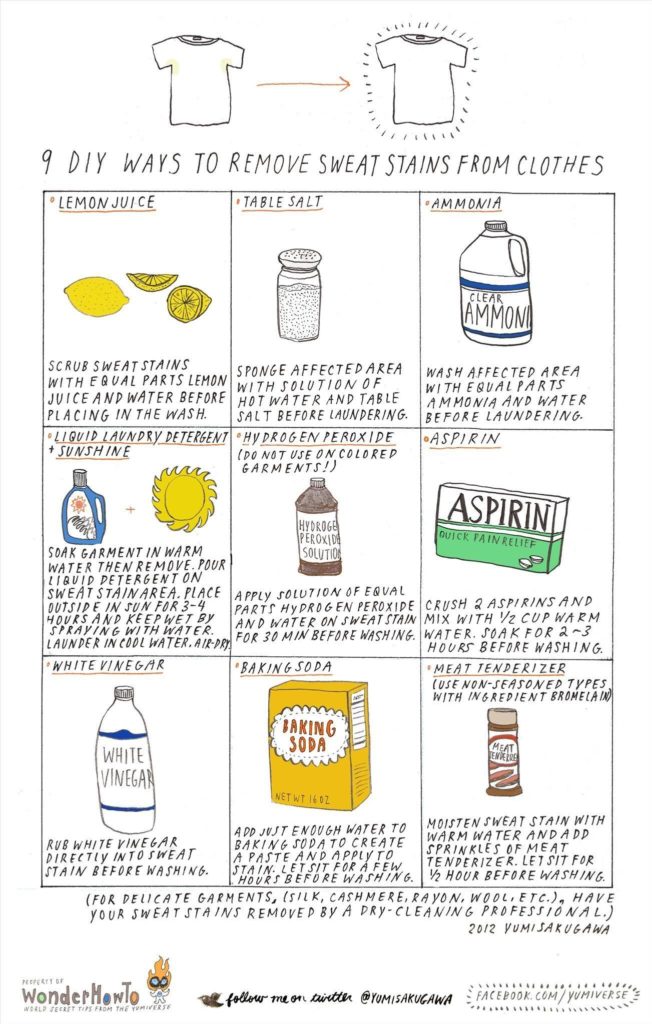 9 DIY WAYS TO REMOVE SWEAT STAINS FROM CLOTHES
LEMON JUICE
SCRUB SWEAT STAINS
WITH EQUAL PARTS LEMON
JUICE AND WATER BEFORE
PLACING IN THE WASH.
TABLE SALT
SPONGE AFFECTED AREA
WITH SOLUTION OF
HOT WATER AND TABLE
SALT BEFORE LAUNDERING.
AMMONIA
CLEAR
AMMONI
WASH AFFECTED AREA
WITH EQUAL PARTS
AMMONIA AND WATER
BEFORE LAUNDERING.
LIQUID LAUNDRY DETERGENT
+ SUNSHINE
+
SOAK GARMENT IN WARM
WATER THEN REMOVE. POUR
LIQUID DETERGENT ON
SWEAT STAIN AREA. PLACE
OUTSIDE IN SUN FOR 3-4
HOURS AND KEEP WET BY
SPRAYING WITH WATER.
LAUNDER IN COOL WATER. AIR-DRY.
HYDROGEN PEROXIDE
(DO NOT USE ON COLORED
GARMENTS!)
HYDROGE
PEROXIDE
SOLUTION
APPLY SOLUTION OF EQUAL
PARTS HYDROGEN PEROXIDE
AND WATER ON SWEAT STAIN
FOR 30 MIN BEFORE WASHING.
ASPIRIN
ASPIRIN
QUICK PAIN RELIEF
CRUSH 2 ASPIRINS AND
MIX WITH 1/2 CUP WARM
WATER. SOAK FOR 2~3
HOURS BEFORE WASHING.
WHITE VINEGAR
WHITE
VINEGAR
RUB WHITE VINEGAR
DIRECTLY INTO SWEAT
STAIN BEFORE WASHING.
BAKING SODA
BAKING
SODA
NET WT 16 OZ
ADD JUST ENOUGH WATER TO
BAKING SODA TO CREATE
A PASTE AND APPLY TO
STAIN. LET SIT FOR A FEW
HOURS BEFORE WASHING.
MEAT TENDERIZER
(USE NON-SEASONED TYPES
WITH INGREDIENT BROMELAIN)
MEAT
MOISTEN SWEAT STAIN WITH
WARM WATER AND ADD
SPRINKLES OF MEAT
TENDERIZER. LET SIT FOR
1/2 HOUR BEFORE WASHING.
(FOR DELICATE GARMENTS, (SILK, CASHMERE, RAYON, WOOL, ETC.), HAVE
YOUR SWEAT STAINS REMOVED BY A DRY-CLEANING PROFESSIONAL.)
2012 YUMI SAKUGAWA
PROPERTY OF
WonderHowTo
WORLD SECRET TIPS FROM THE YUMIVERSE
follow me on twitter @YUMISAKUGAWA
FACEBOOK.COM/YUMIVERSE